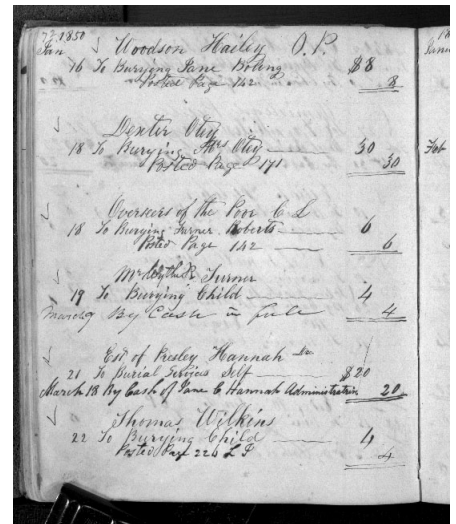 1850
Jan Woodson Hailey O.P.
16 To Burying Jane Boling $8
Posted Page 142 8
Dexter Otey
18 To Burying Mrs Otey 30
Posted Page 171 30
Overseers of the Poor C L
18 To Burying Turner Roberts 6
Posted Page 142 6
Mr Wythe R Turner
19 To Burying Child 4
March 9 By Cash in full 4
Est of Presley Hannah Dr.
21 To Burial Services Self $20
March 18 By Cash of Jane C Hannah Administratrix 20
Thomas Wilkins
22 To Burying Child 4
Posted Page 224 4
18
Janu
Feb